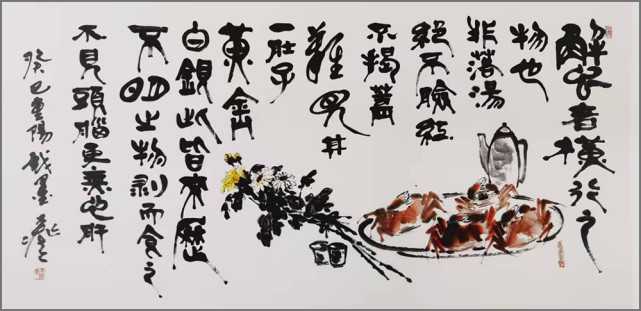 蟹者橫行之
物也
非落湯
絕不臉紅
不揭蓋
難見其
一肚子
黃金
白銀此皆來歷
不明之物剥而食之
不見頭腦更無心肝
癸巳重陽戲墨